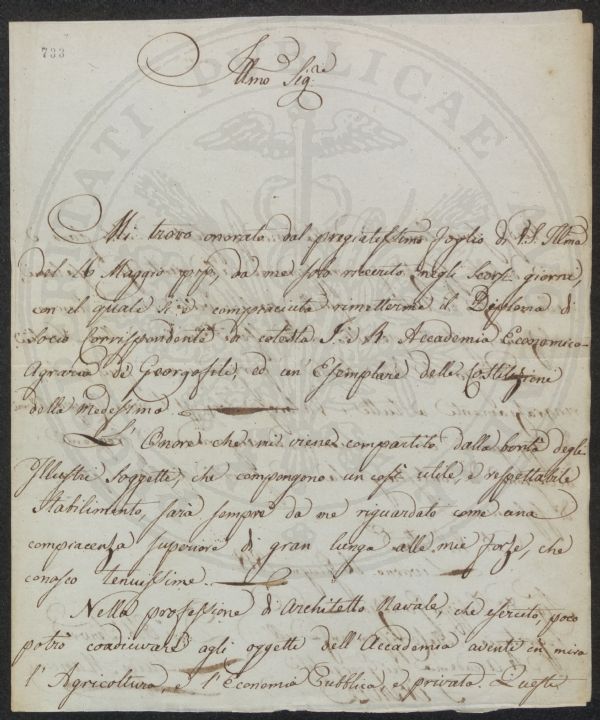 733
Illmo Sig.re
Mi trovo onorato dal pregiatissimo foglio di V.S. Illma
del 16 Maggio pp.º, da me solo ricevuto negli scorsi giorni,
con il quale si è compiaciuta rimettermi il Diploma di
Socio Corrispondente di cotesta I. e R. Accademia Economico-
Agraria de' Georgofili, ed un' Esemplare delle Costituzioni
della medesima.
L'Onore che mi viene compartito dalla bontà degl'
Illustri Soggetti, che compongono un così utile, e rispettabile
Stabilimento, sarà sempre da me riguardato come una
compiacenza superiore di gran lunga alle mie forze, che
conosco tenuissime.
Nella professione di Architetto Navale, che esercito, poco
potrò coadiuvare agli oggetti dell'Accademia aventi in mira
l'Agricoltura, e l'Economia Pubblica, e privata. Questi